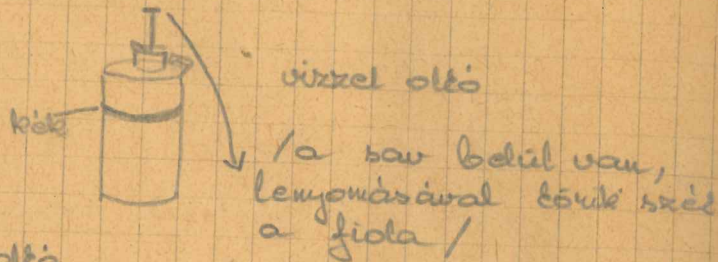 vizzel oltó
kék
/a sav belül van,
lenyomásával törik szét
a fiola/
oltó